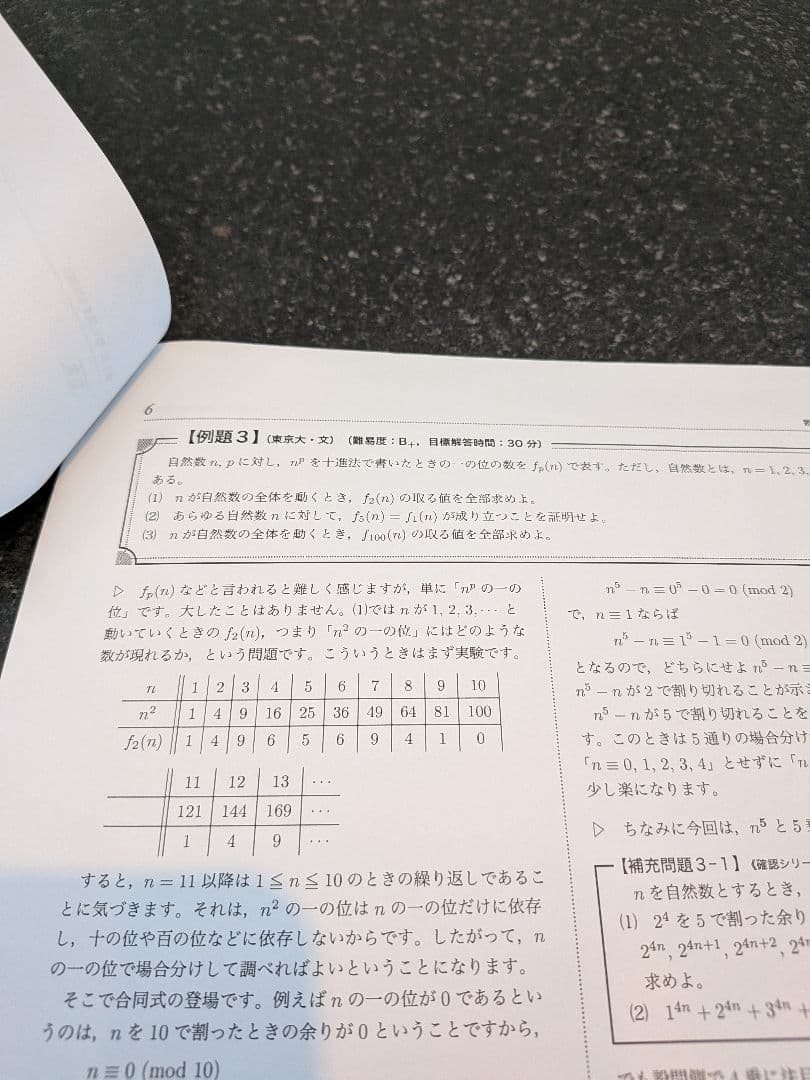 6
【例題3】（東京大・文）（難易度：B₊，目標解答時間：30分）
自然数 n, p に対し，nᵖ を十進法で書いたときの一の位の数を fₚ(n) で表す。ただし，自然数とは，n = 1, 2, 3,
ある。
(1) n が自然数の全体を動くとき，f₂(n) の取る値を全部求めよ。
(2) あらゆる自然数 n に対して，f₅(n) = f₁(n) が成り立つことを証明せよ。
(3) n が自然数の全体を動くとき，f₁₀₀(n) の取る値を全部求めよ。
▷ fₚ(n) などと言われると難しく感じますが，単に「nᵖ の一の
位」です。大したことはありません。(1)では n が 1, 2, 3, ⋯ と
動いていくときの f₂(n)，つまり「n² の一の位」にはどのような
数が現れるか，という問題です。こういうときはまず実験です。
n 1 2 3 4 5 6 7 8 9 10
n² 1 4 9 16 25 36 49 64 81 100
f₂(n) 1 4 9 6 5 6 9 4 1 0
11 12 13 ⋯
121 144 169 ⋯
1 4 9 ⋯
すると，n = 11 以降は 1 ≦ n ≦ 10 のときの繰り返しであるこ
とに気づきます。それは，n² の一の位は n の一の位だけに依存
し，十の位や百の位などに依存しないからです。したがって，n
の一の位で場合分けして調べればよいということになります。
そこで合同式の登場です。例えば n の一の位が 0 であるとい
うのは，n を 10 で割ったときの余りが 0 ということですから，
n ≡ 0 (mod 10)
n⁵ − n ≡ 0⁵ − 0 = 0 (mod 2)
で，n ≡ 1 ならば
n⁵ − n ≡ 1⁵ − 1 = 0 (mod 2)
となるので，どちらにせよ n⁵ − n ≡
n⁵ − n が 2 で割り切れることが示さ
n⁵ − n が 5 で割り切れることを
す。このときは 5 通りの場合分け
「n ≡ 0, 1, 2, 3, 4」とせずに「n
少し楽になります。
▷ ちなみに今回は，n⁵ と 5
【補充問題3-1】（確認シリー
n を自然数とするとき，
(1) 2⁴ を 5 で割った余り
2⁴ⁿ, 2⁴ⁿ⁺¹, 2⁴ⁿ⁺², 2⁴ⁿ
求めよ。
(2) 1⁴ⁿ + 2⁴ⁿ + 3⁴ⁿ +